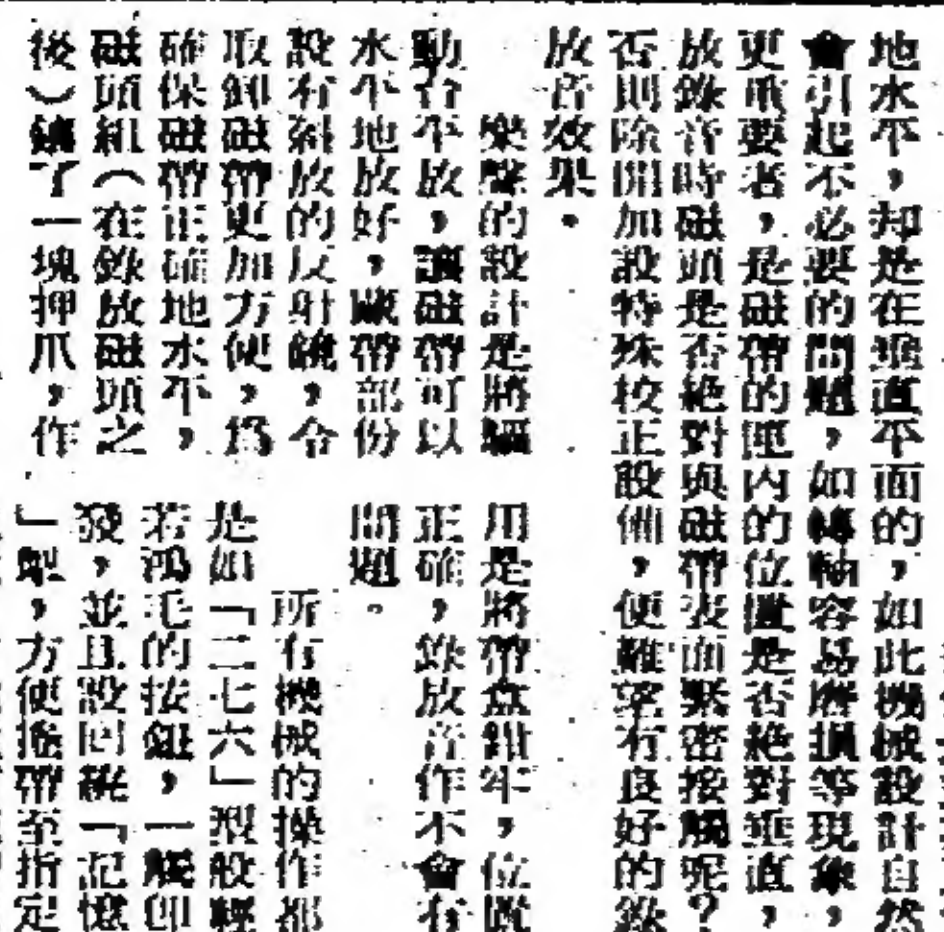 地水平，却是在垂直平面的，如此機械設計自然
會引起不必要的問題，如轉軸容易磨損等現象，
更重要者，是磁帶的匣內的位置是否絶對垂直，
放錄音時磁頭是否絶對與磁帶表面緊密接觸呢？
否則除開加設特殊校正設備，便難望有良好的錄
放音效果。
樂聲的設計是將驅
動台平放，讓磁帶可以
水平地放好，藏帶部份
設有斜放的反射鏡，令
取卸磁帶更加方便，爲
確保磁帶正確地水平，
磁頭組（在錄放磁頭之
後）鑲了一塊押爪，作
用是將帶盒鉗牢，位置
正確，錄放音作不會有
問題。
所有機械的操作都
是如「二七六」型般輕
若鴻毛的按鈕，一觸卽
發，並且設回繞「記憶
」掣，方便捲帶至指定